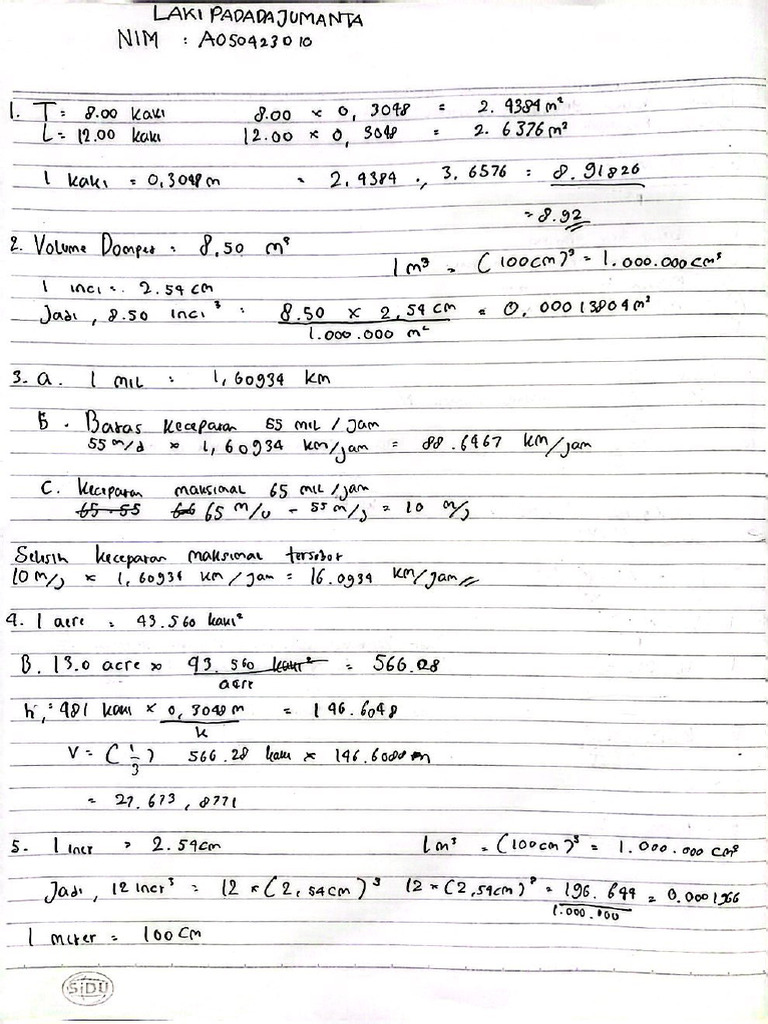 LAKI PADADA JUMANTA
NIM : A050423010
1. T = 8.00 kaki 8.00 × 0,3048 = 2.4384 m²
L = 12.00 kaki 12.00 × 0,3048 = 2.6376 m²
1 kaki = 0,3048 m = 2,4384 . , 3.6576 = 8.91826
= 8.92
2. Volume Dompet = 8,50 m³
1 m³ = (100 cm)³ = 1.000.000 cm³
1 inci = 2.54 cm
Jadi, 8.50 inci³ = 8.50 × 2,54 cm = 0,00013804 m²
1.000.000 m²
3. a. 1 mil = 1,60934 km
B. Batas kecepatan 55 mil / jam
55 m/j × 1,60934 km/jam = 88.6467 km/jam
C. Kecepatan maksimal 65 mil/jam
65 - 55 65 m/j - 55 m/j = 10 m/j
Selisih kecepatan maksimal tersebut
10 m/j × 1,60934 km / jam = 16.0934 km/jam
4. 1 acre = 43.560 kaki²
B. 13.0 acre × 43.560 kaki² = 566.28
acre
h = 481 kaki × 0,3048 m = 146.6048
k
V = (1/3) 566.28 kaki × 146.6088 m
= 27.673,8771
5. 1 inci = 2.54 cm 1 m³ = (100 cm)³ = 1.000.000 cm³
Jadi, 12 inci³ = 12 × (2,54 cm)³ 12 × (2,54 cm)³ = 196.644 = 0.000166
1.000.000
1 meter = 100 cm
SiDU